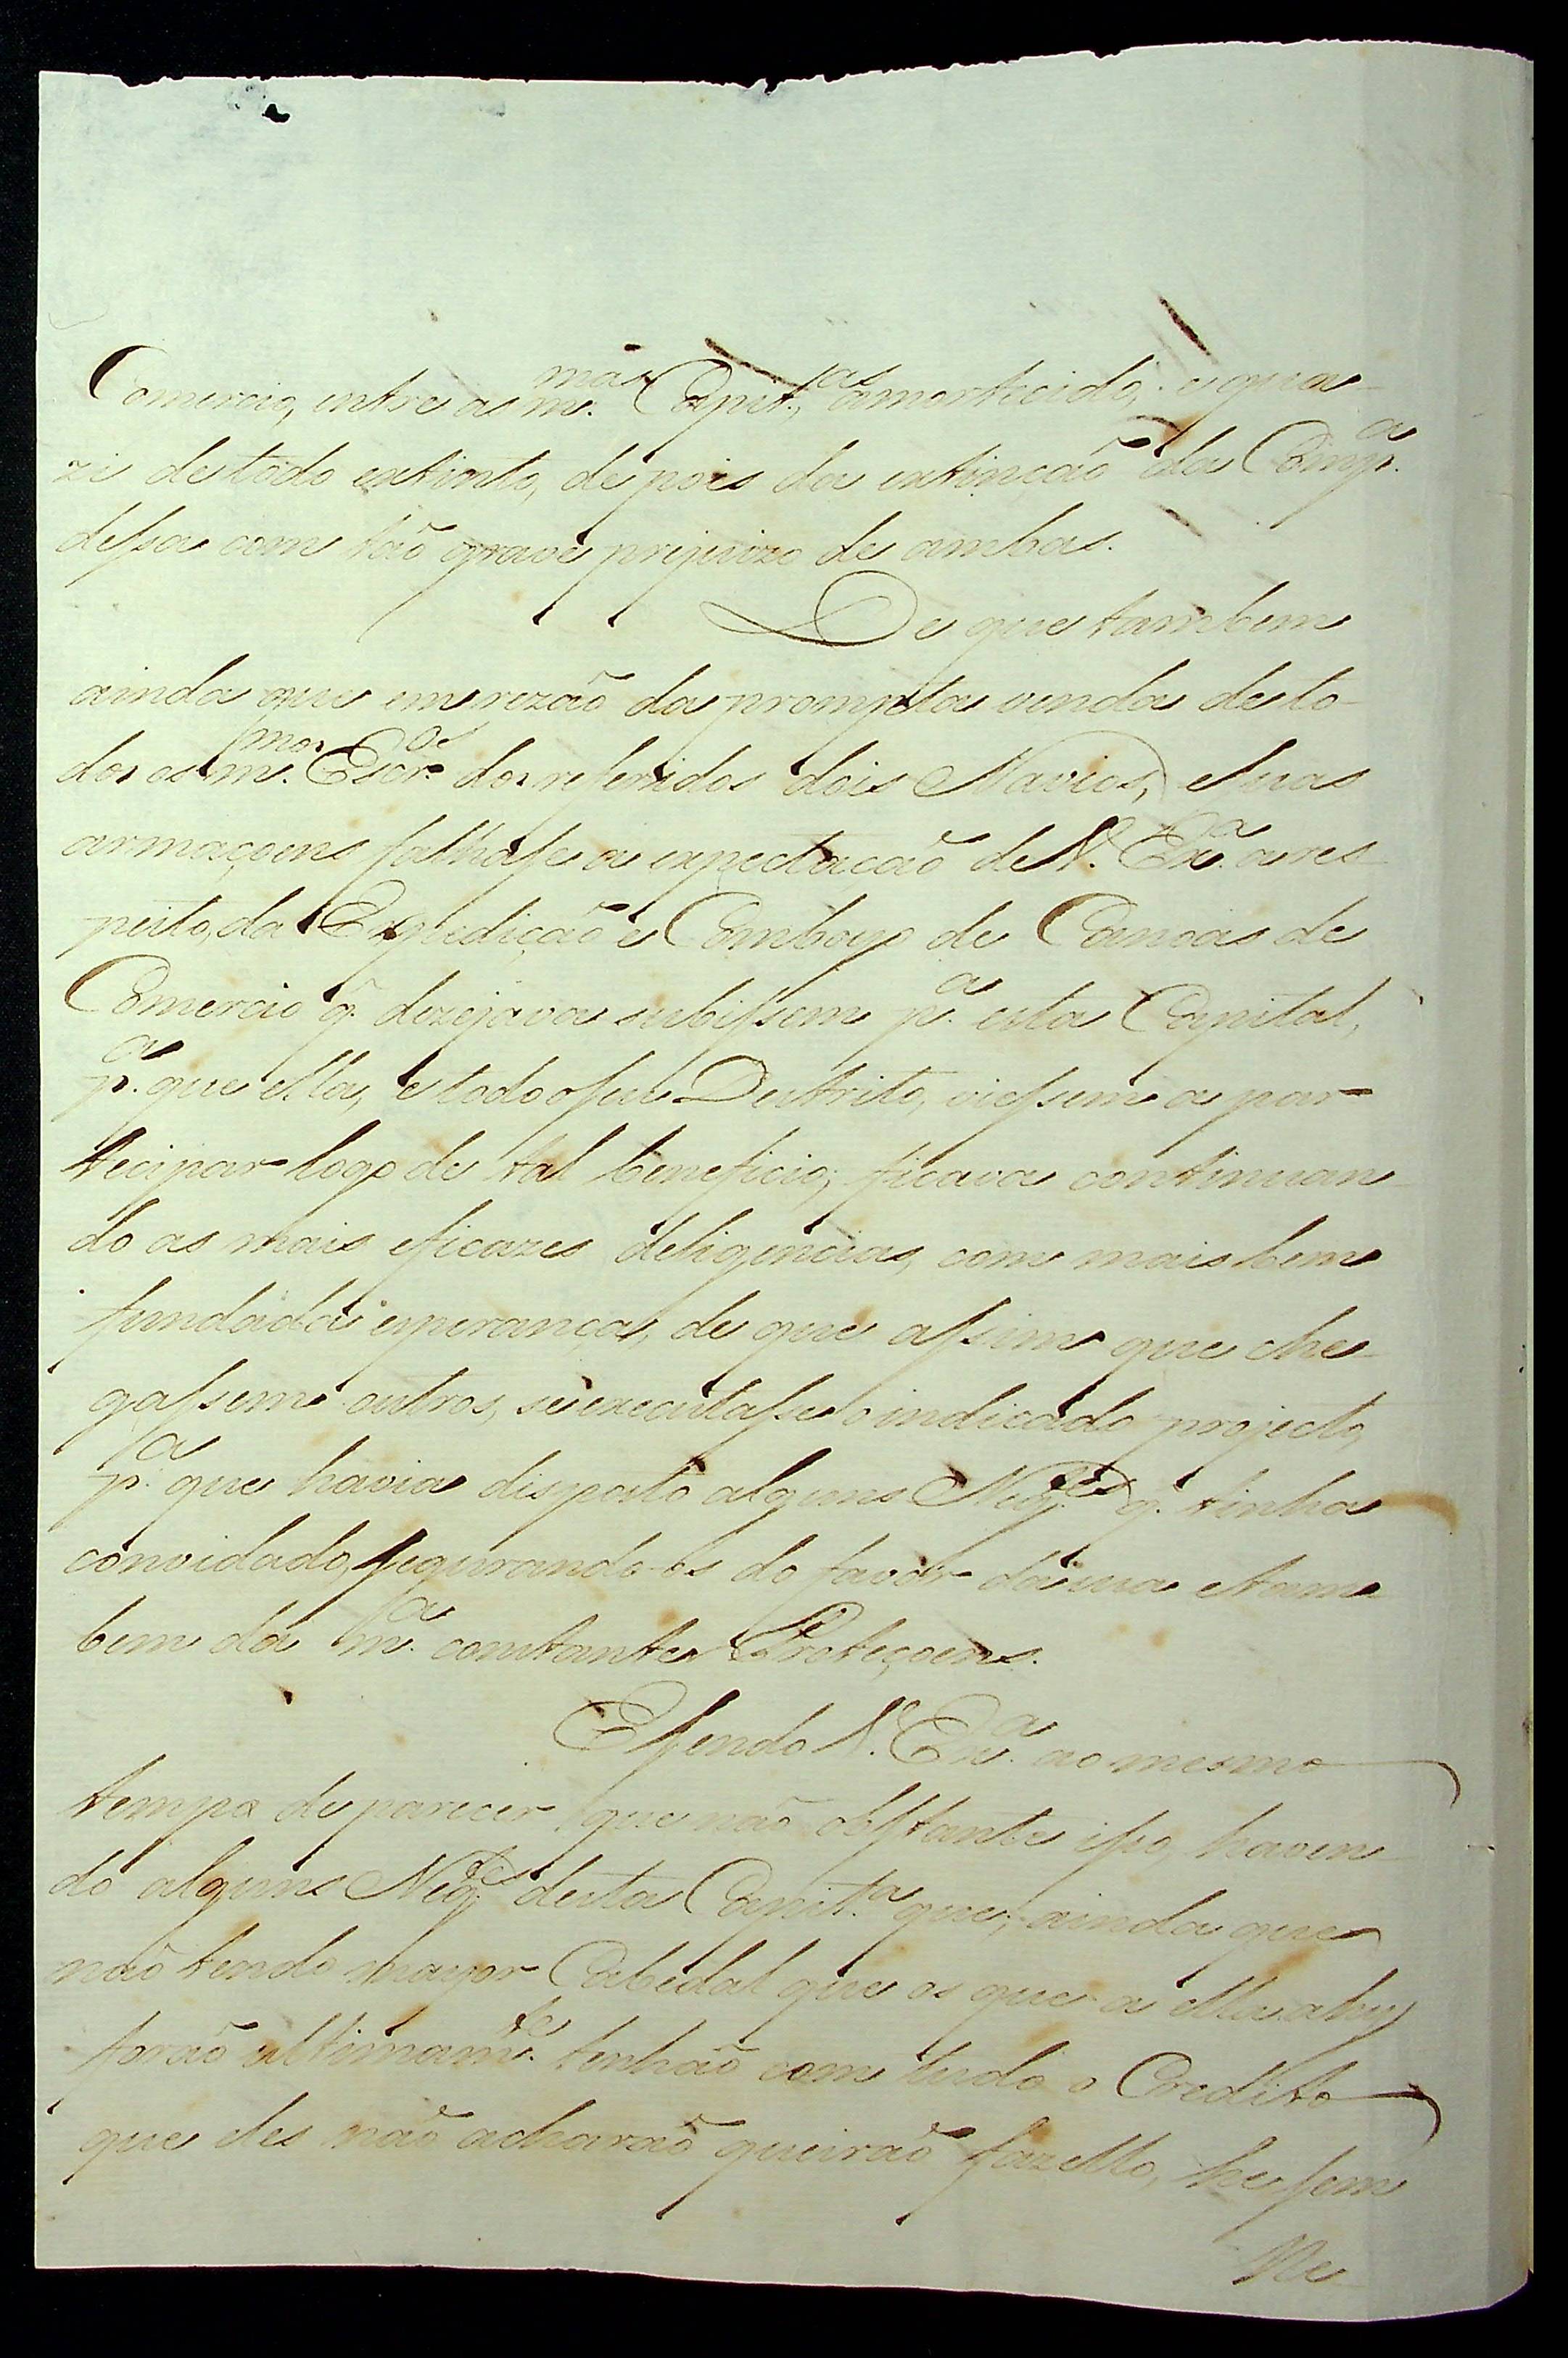 Comercio, entre as m.mas Capit.as amortecido, e qua-
zi de todo extinto, depois da extinção da Comp.a
dessa com tão grave prejuizo de ambas.
De que tambem
ainda que em rezão da prompta venda de to-
dos os m.mos Escr.os dos referidos dois Navios, e suas
armaçoens falhasse a expectação de V. Ex.a a res
peito, da Expedição e Comboyo de Canoas de
Comercio q. dezejava subissem p.a esta Capital,
p.a que ella, e todo o seu Destrito, viessem a par-
tecipar logo de tal beneficio; ficava continuan
do as mais eficazes deligencias, com mais bem
fundada esperança, de que assim que che
gassem outros, se executasse o indicado projecto,
p.a que havia disposto alguns Neg.es q. tinha
convidado, segurando-os do favor da sua e tam
bem da m.a constantes Proteçoens.
E sendo V. Ex.a ao mesmo
tempo de parecer que não obstante isso, haven
do alguns Neg.es desta Capit.a que, ainda que
não tendo mayor Cabedal que os que a ella ahy
forão ultimam.te tenhão com tudo o Credito
que eles não acharão queirão fazello, he sem
Ne